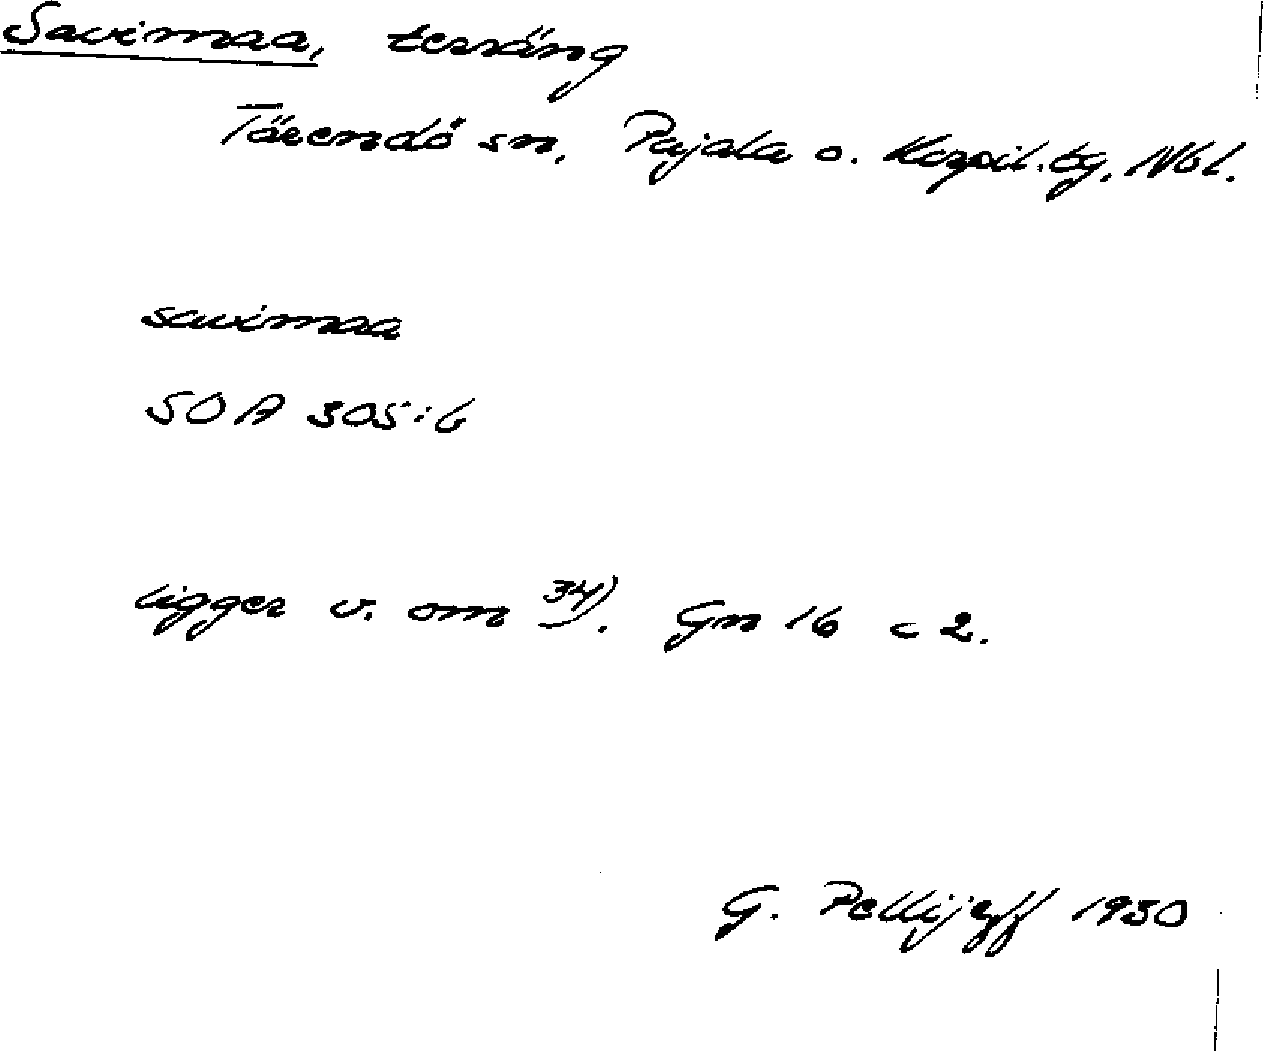 Savimaa, terräng
Tärendö sn, Pajala o. Korpil. tg, Nbl.
savimaa
SOA 305:6
ligger v. om 34). Gn 16 c 2.
G. Pellijeff 1930